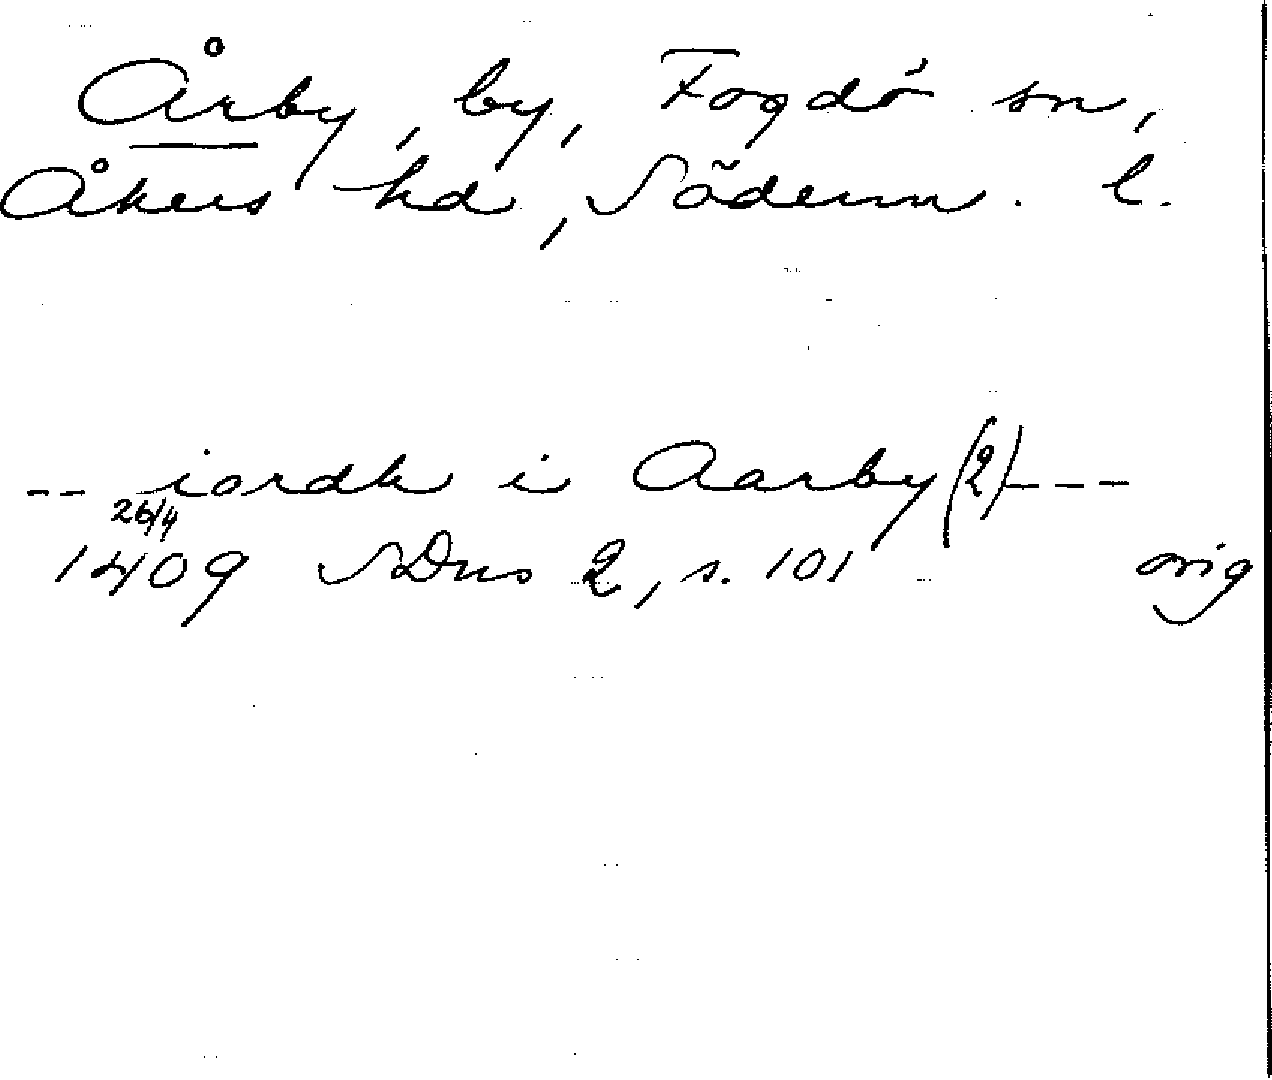 Årby, by, Fogdö sn,
Åkers hd, Söderm. l.
-- iordh i Aarby (2)---
26/4
1409 SDns 2, s. 101 orig